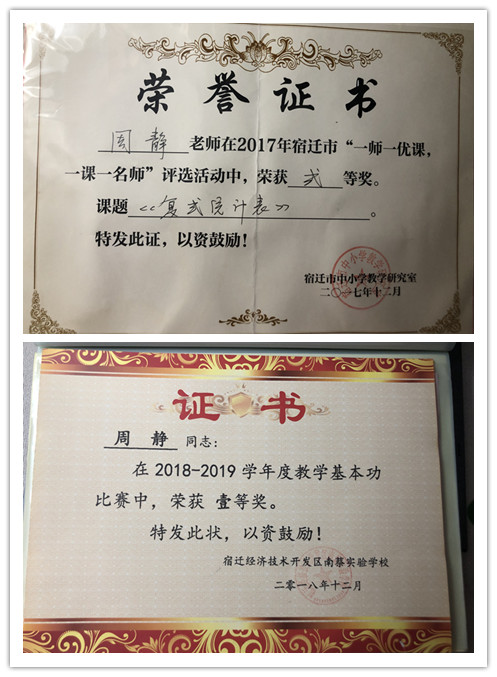 荣誉证书
周静 老师在2017年宿迁市“一师一优课，
一课一名师”评选活动中，荣获 弍 等奖。
课题 《复式统计表》 。
特发此证，以资鼓励！
宿迁市中小学教学研究室
二〇一七年十二月
证书
周静 同志：
在2018-2019学年度教学基本功
比赛中，荣获 壹等奖。
特发此状，以资鼓励！
宿迁经济技术开发区南蔡实验学校
二零一八年十二月